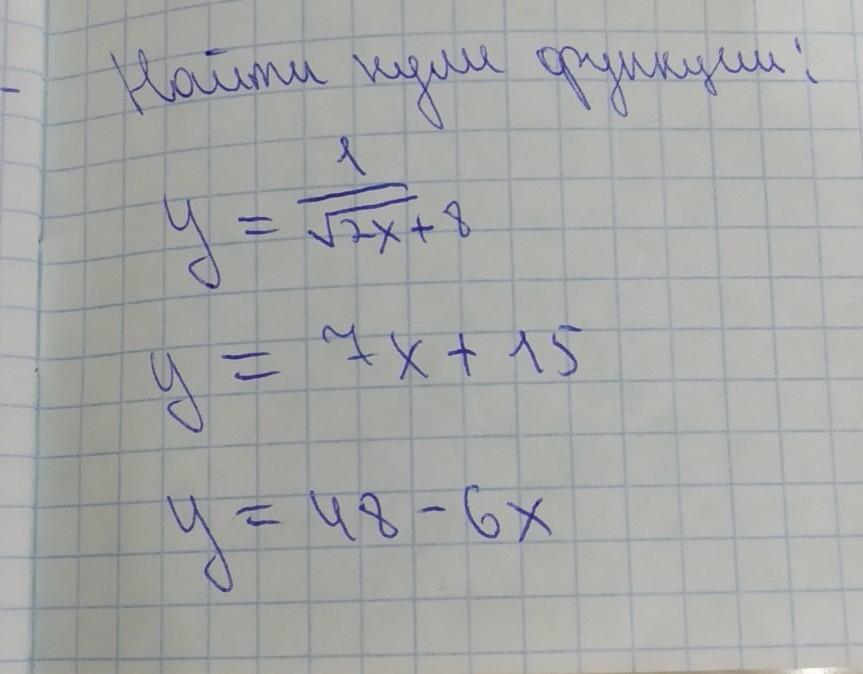 Найти нули функции:
y = 1/(√2x + 8)
y = 7x + 15
y = 48 - 6x